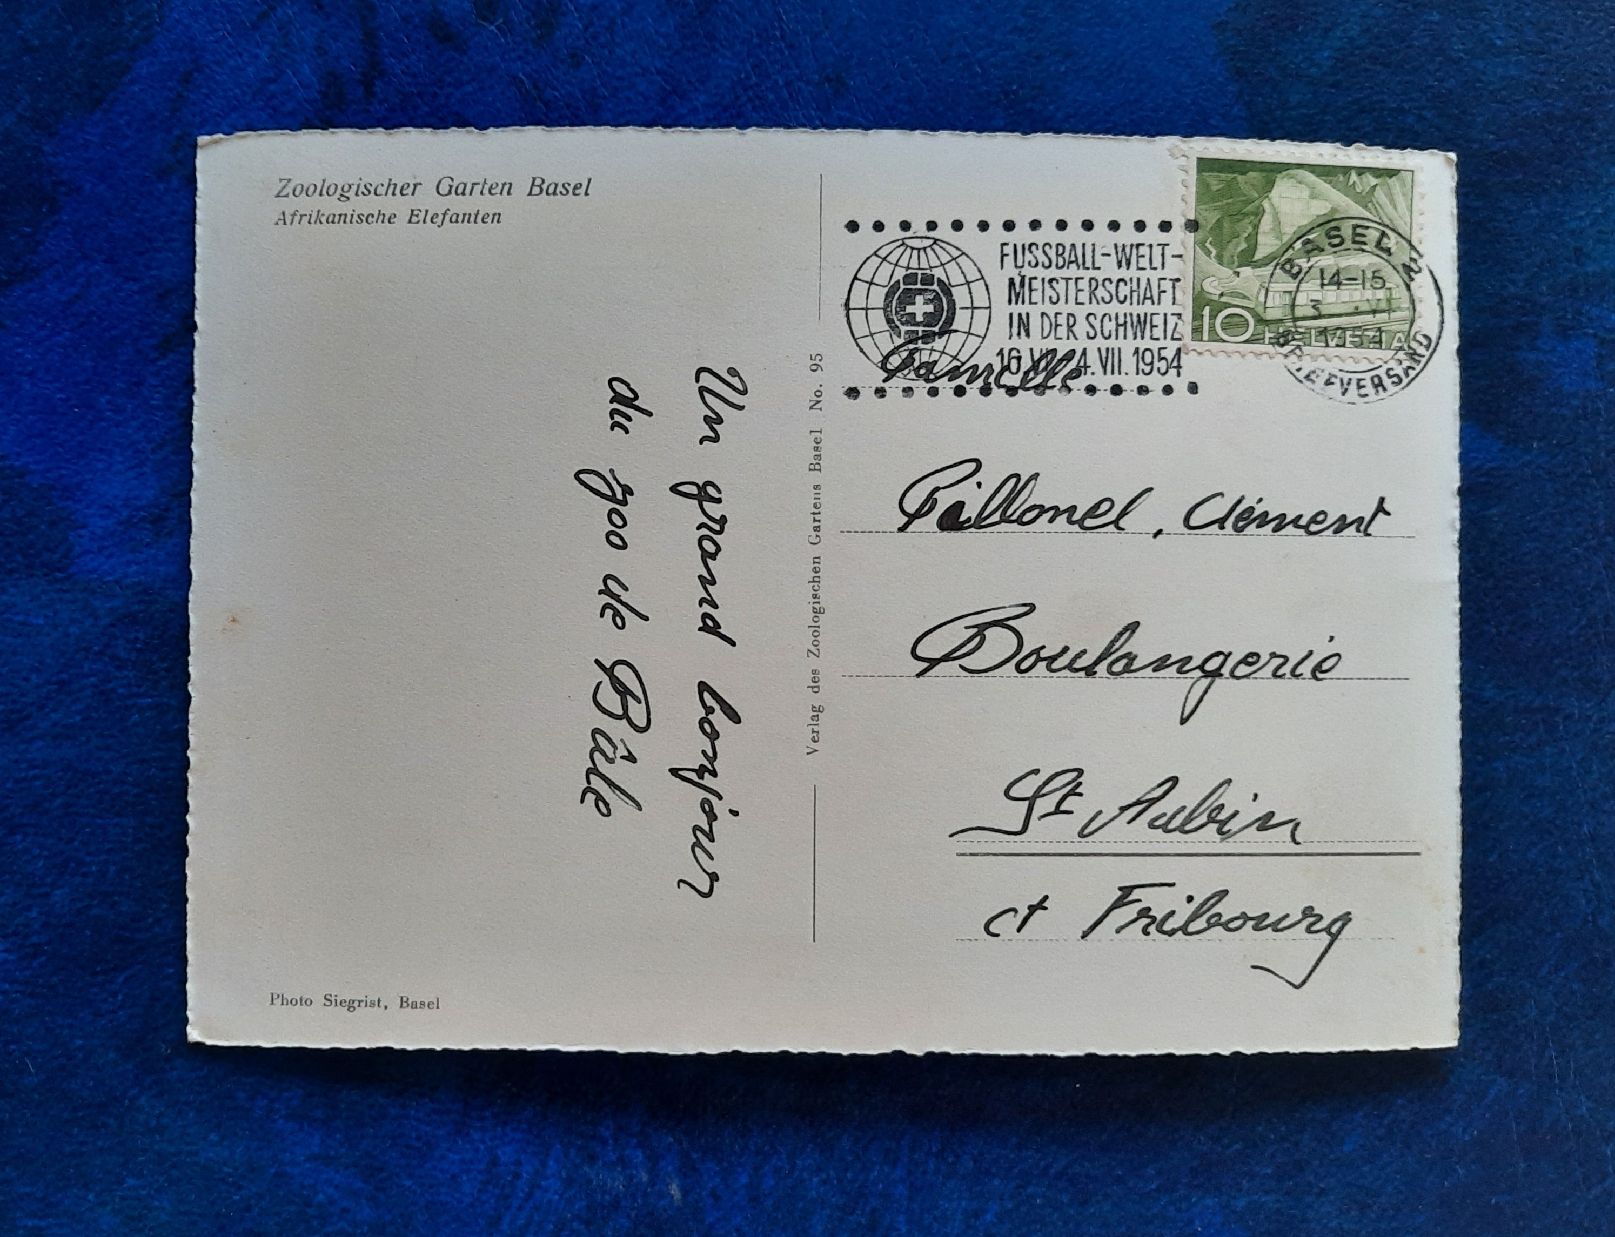 Zoologischer Garten Basel
Afrikanische Elefanten
Un grand bonjour
du zoo de Bâle
Photo Siegrist, Basel
Verlag des Zoologischen Gartens Basel No. 95
FUSSBALL-WELT-
MEISTERSCHAFT
IN DER SCHWEIZ
16. VI.-4. VII. 1954
BASEL
14-15
1954
BRIEFVERSAND
10 HELVETIA
Famille
Pillonel, Clément
Boulangerie
St Aubin
ct Fribourg